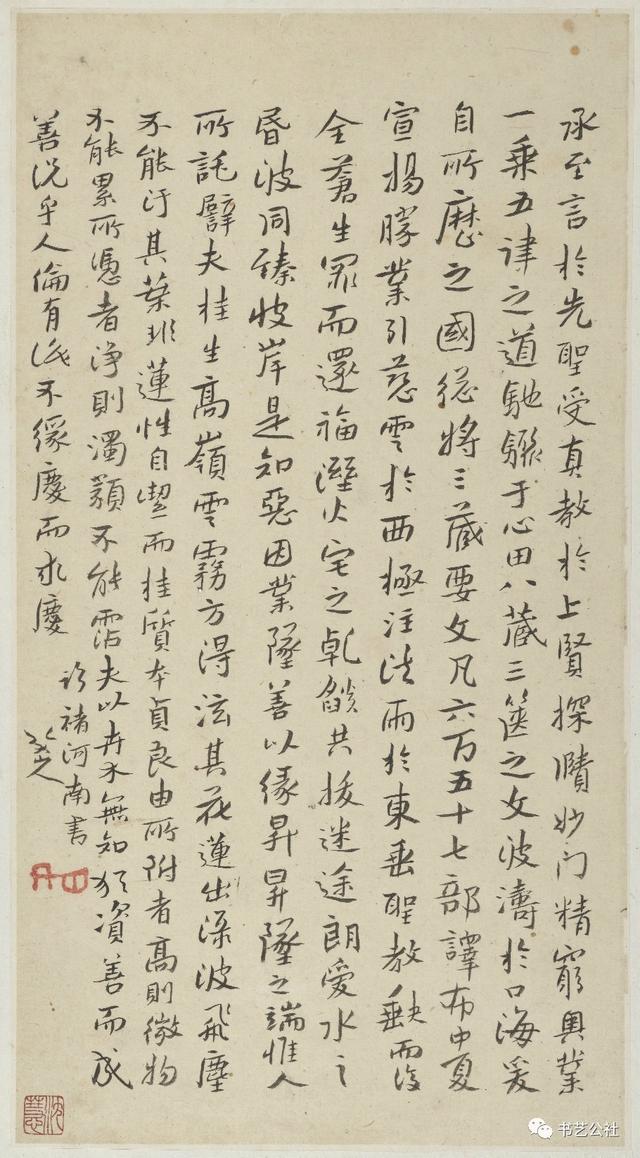 承至言於先聖受真教於上賢探賾妙门精窮奧業
一乘五律之道馳驟于心田八藏三篋之文波濤於口海爰
自所歷之國總將三藏要文凡六百五十七部譯布中夏
宣揚勝業引慈雲於西極注法雨於東垂聖教缺而復
全蒼生罪而還福溼火宅之乾燄共拔迷途朗愛水之
昏波同臻彼岸是知惡因業墜善以緣昇昇墜之端惟人
所託譬夫桂生高嶺雲霧方得泫其花蓮出淥波飛塵
不能汙其葉非蓮性自潔而桂質本貞良由所附者高則微物
不能累所憑者淨則濁類不能霑夫以卉木無知猶資善而成
善況乎人倫有識不緣慶而求慶
臨褚河南書
八大山人
书艺公社